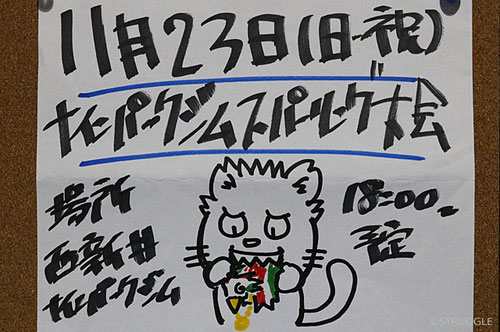 11月23日(日・祝)
ナイパークジムスパーリング大会
場所
西新井
ナイパークジム
18:00〜
予定
©STRUGGLE